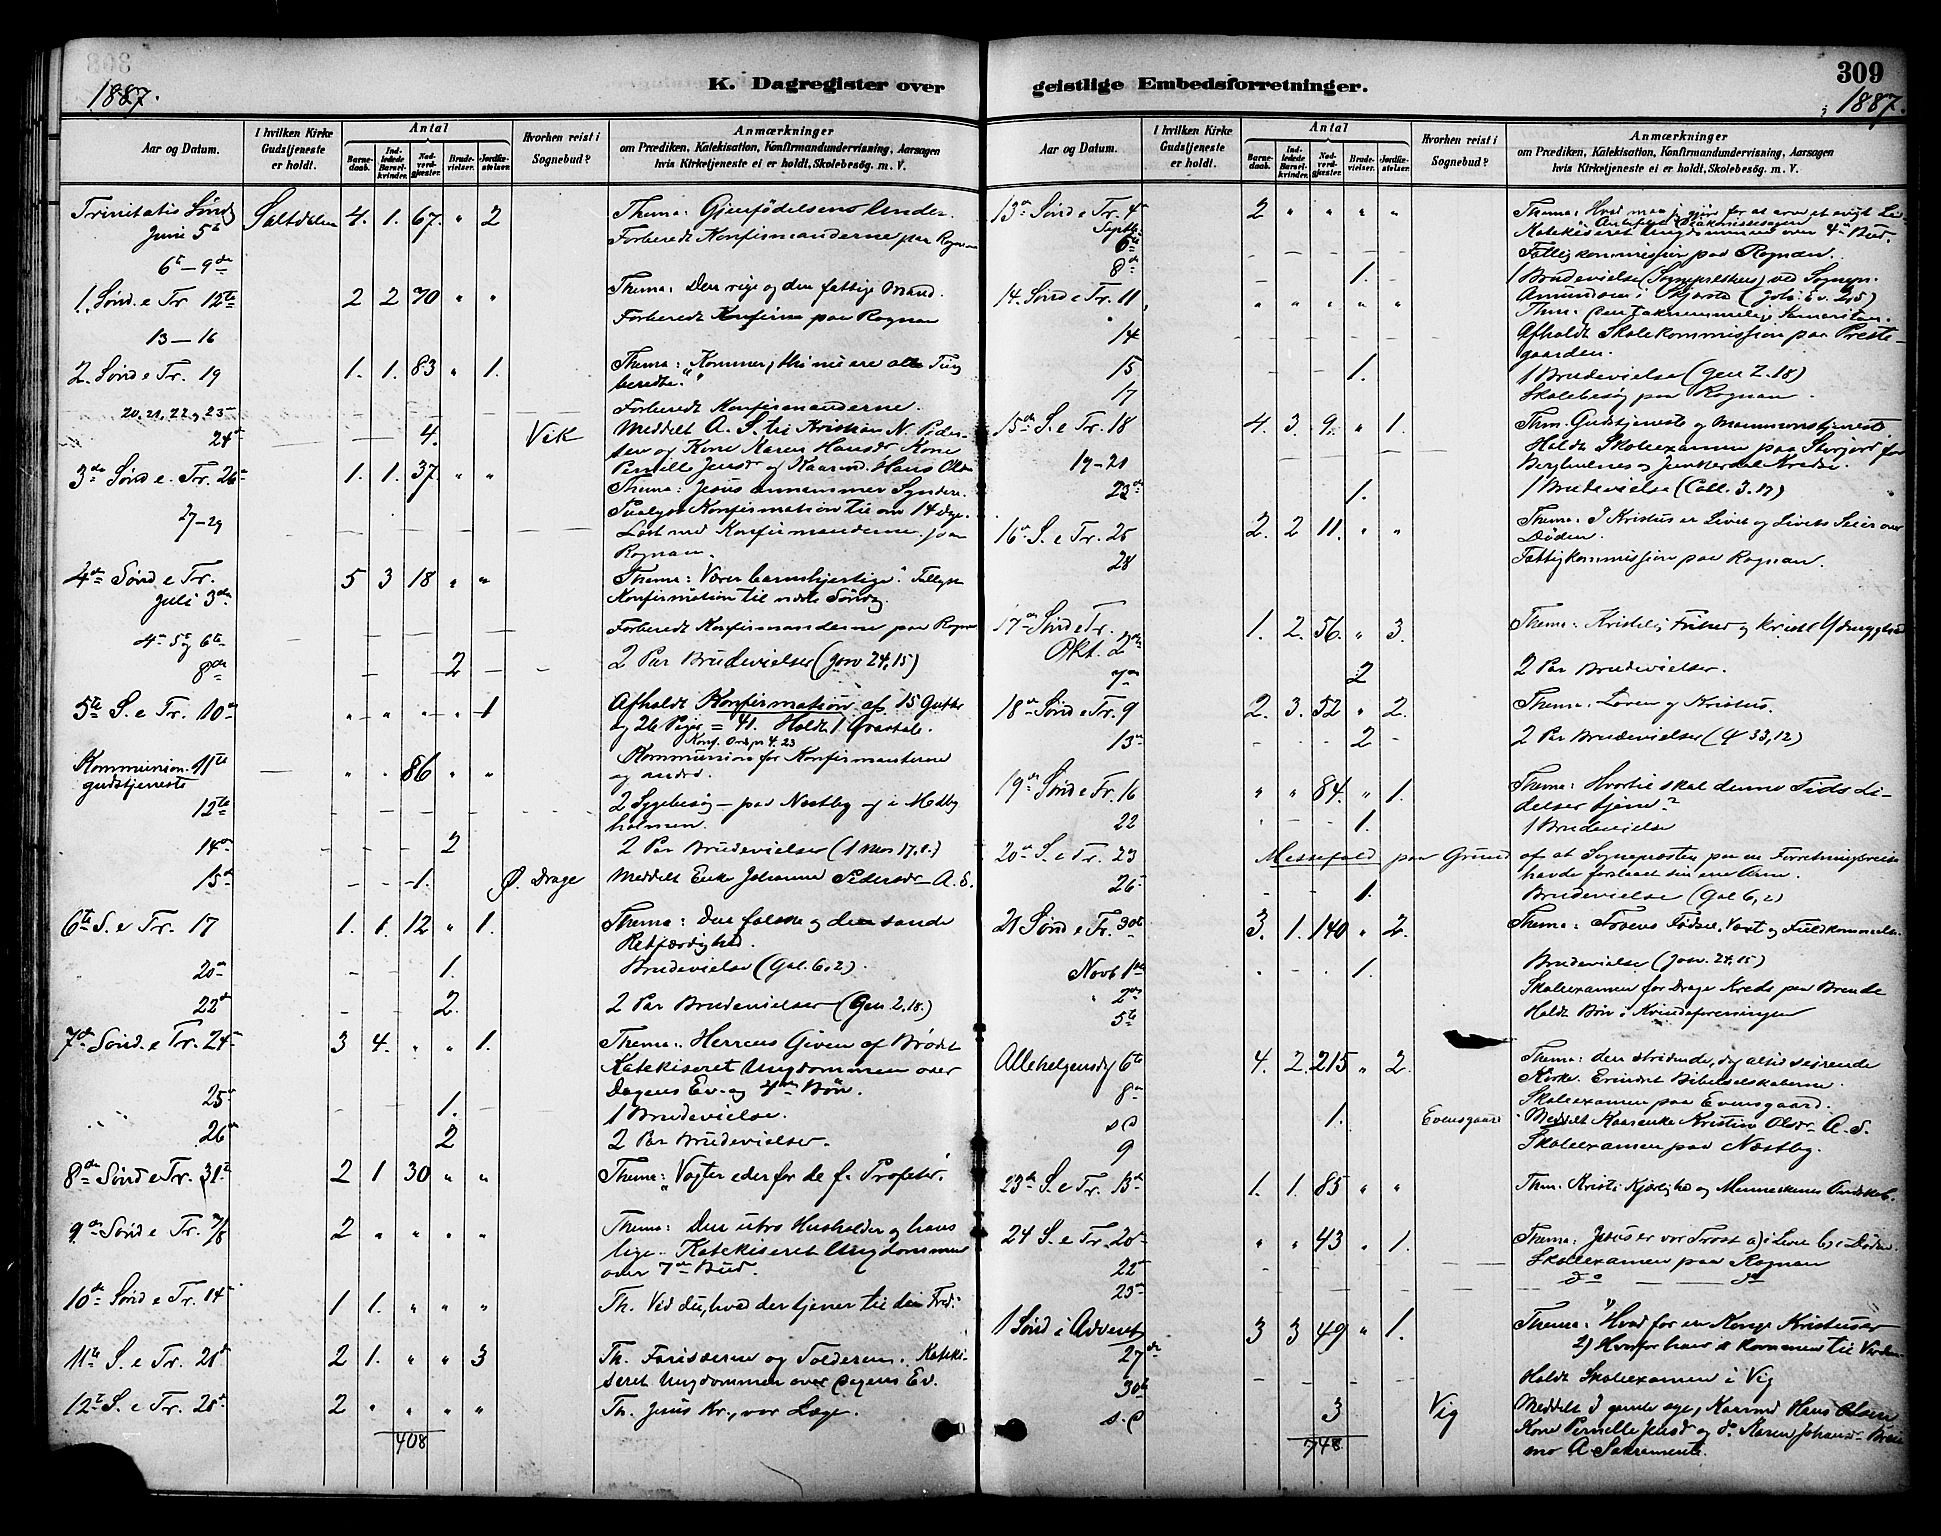 1887.
K. Dagregister over
Aar og Datum.
I hvilken Kirke Gudstjeneste er holdt.
Antal
Barnedaab.
Indledede Barselkvinder.
Nadverdgjæster.
Brudevielser.
Jordfæstelser.
Hvorhen reist i Sognebud?
Anmærkninger
om Prædiken, Katekisation, Konfirmandundervisning, Aarsagen
hvis Kirketjeneste ei er holdt, Skolebesøg. m. V.
Trinitatis Sønd Saltdalen 4. 1. 67. " 2 Thema: Gjenfødelsens Under.
Juni 5te Forberedt Konfirmanderne paa Rognan
6te – 9de
1. Sønd. e Tr. 12te 2 2 70 " " Thema: Den rige og den fattige Mand.
Forberedt Konfirm paa Rognan
13 – 16
2. Sønd e Tr. 19 1. 1. 83 " 1. Thema: "Kommer, thi nu ere alle Ting
beredte."
20, 21, 22 og 23 Forberedt Konfirmanderne.
24de 4. Vik Meddelt A. S. til Kristian N. Peder-
sen og Kone Karen Hansdr Kone
Pernille Jensdr og Kaarmd. Hans Ols
3de Sønd e. Tr. 26 1. 1. 37. " " Thema: Jesus annammer Syndere.
Konfirmation til om 14 dage.
27–29 Læst med Konfirmanderne paa
Rognan.
4de Sønd e Tr. 5 3 18 " " Thema: Værer barmhjertige.
Juli 3de Konfirmation til næste Søndag.
4de 5te og 6te Forberedt Konfirmanderne paa Rognan
8de 2 2 Par Brudevielser (Josv 24, 15)
5te S. e Tr. 10de " " " " 1 Afholdt Konfirmation af 15 Gutter
og 26 Piger = 41. Holdt 1
Konf. Ordspr 4. 23
Kommunion 11te " " 86 " " Kommunion for Konfirmanterne
gudstjeneste og andre.
12te 2 Sygebesøg – paa Nestby og i Medby
holmen.
14de 2 2 Par Brudevielser (1 Mos 17, 1.)
15de 1. Ø. Drage Meddelt Enke Johanna Pedersdr A. S.
6te S. e Tr. 17 1. 1. 12 " 1. Thema: Den falske og den sande
Retfærdighed.
20de 1. Brudevielse (Gal. 6, 2).
22de 2. 2 Par Brudevielser (Gen 2, 18.)
7de Sønd. e Tr. 24 3 4. " " 1. Thema: Herrens Given af Brødet
Katekiseret Ungdommen over
Dagens Ev. og 4de Bøn.
25de 1. 1 Brudevielse.
26de 2 2 Par Brudevielser.
8de Sønd e Tr. 31te 2 1 30 " " Thema: "Vogter eder for de f. Profeter.
9de Sønd e Tr. 7/8 2 " " " " Thema: Den utro Husholder og hans
lige. Katekiseret Ungdommen
over 7de Bud.
10de Sønd e Tr. 14 1 1. " " " Th. Vid du, hvad der tjener til din Fred.
11te S. e Tr. 21de 2 1. " " 3 Th. Farisæeren og Tolderen. Kateki-
seret Ungdommen over Dagens Ev.
12te S. e Tr. 28 2 " " " " Th. Jesus Kr., vor Læge.
408
309
1887.
geistlige Embedsforretninger.
Aar og Datum.
I hvilken Kirke Gudstjeneste er holdt.
Antal
Barnedaab.
Indledede Barselkvinder.
Nadverdgjæster.
Brudevielser.
Jordfæstelser.
Hvorhen reist i Sognebud?
Anmærkninger
om Prædiken, Katekisation, Konfirmandundervisning, Aarsagen
hvis Kirketjeneste ei er holdt, Skolebesøg. m. V.
13de Sønd e Tr. 4 2 " " " " Thema: Hvad maa jeg gjøre for at arve et evigt Liv
Septbr. Katekiseret Ungdommen over 4de Bud.
6te Fattigkommission paa Rognan.
8de 1. 1 Brudevielse
14. Sønd e Tr. 11 " " " " " Thm: Den taknemmelige Samaritan.
14 Afholdt Skolekommission paa Preste-
gaarden.
15 1. 1 Brudevielse (Gen 2. 18)
17 Skolebesøg paa Rognan.
15de S. e Tr. 18 4. 3. 9. " 1. Thm. Gudstjeneste og Mammonstjeneste
19–21 Holdt Skoleexamen paa Storjord for
Berghulnes og Junkerdal Kredse.
23de 1. 1 Brudevielse (Coll. 3. 17)
16de S. e Tr. 25 2. 2 11. " " Thema: I Kristus er Livet og Livets Seier over
Døden.
28 Fattigkommission paa Rognan.
17de Sønd e Tr. 1. 2. 56. " 3. Thema: Kristelig Frihed og kristel Ydmyghed
Okt. 2den
7de 2 2 Par Brudevielser.
18de Sønd e Tr. 9 2. 3. 52 " 2. Thema: Loven og Kristus.
13de 2 2 Par Brudevielser (ψ 33, 12)
19de Sønd e Tr. 16 " " 84. " 1. Thema: Hvortil skal denne Tids Li-
delser tjene?
22 1. 1 Brudevielse
20de S. e Tr. 23 Messefald paa Grund af at Sognepresten paa en Forretningsreise
havde forslaaet sin ene Arm.
26 1. Brudevielse (Gal 6, 2)
21 Sønd e Tr. 30te 3. 1. 140 " 2. Thema: Troens Fødsel, Vext og Fuldkommelse.
Novb 1ste 1. Brudevielse (Josv. 24, 15)
" 2den Skoleexamen for Drage Kreds paa Brende
5te Holdt Bøn i Kvindeforeningen
Allehelgensdg 6te 4. 2. 215 " 2. Thema: den stridende, dog altid seirende
Kirke. Erindret Bibelselskaberne.
8de Skoleexamen paa Evensgaard.
s. D 1. Evensgaard Meddelt Kaarenke Kristine Olsdr A. S.
9 Skoleexamen paa Næstby.
23de S. e Tr. 13de 1. 1. 85 " " Thm. Kristi Kjærlighed og Menneskenes Ondskab.
24 S. e Tr. 20de " " 43 " 1. Thema: Jesus er vor Trøst a) i Livet b) i Døden.
22de Skoleexamen paa Rognan
23de do do
1 Sønd i Advent 3 3 49 " 1. Thema: 1) Hvad for en Konge Kristus er
27de 2) Hvorfor han er kommen til Verden
30te Holdt Skoleexamen i Vig
s. D 3 Vig Meddelt 3 gamle syge, Kaarmd Hans Olsen
Kone Pernelle Jensdr og do Karen Johansdr
A. Sakramente.
748